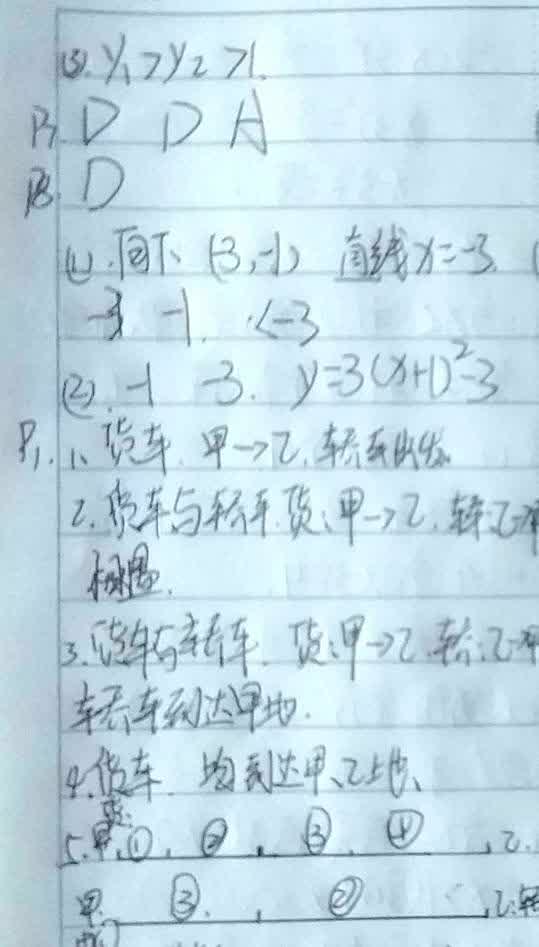 (3). y₁>y₂>1.
D D A
D
(1). 向下 (-3,-1) 直线x=-3. (
-3 -1. <-3
(2). -1 -3. y=3(x+1)²-3
P₁. 1、货车. 甲→乙. 轿车出发.
2. 货车与轿车. 货:甲→乙. 轿:乙→甲
相遇.
3. 货车与轿车. 货:甲→乙. 轿:乙→甲
轿车到达甲地.
4. 货车. 均到达甲、乙上地、
货:
5. 甲. ①. ②. ③. ④ , 乙.
甲. ③. , ② , 乙: 轿